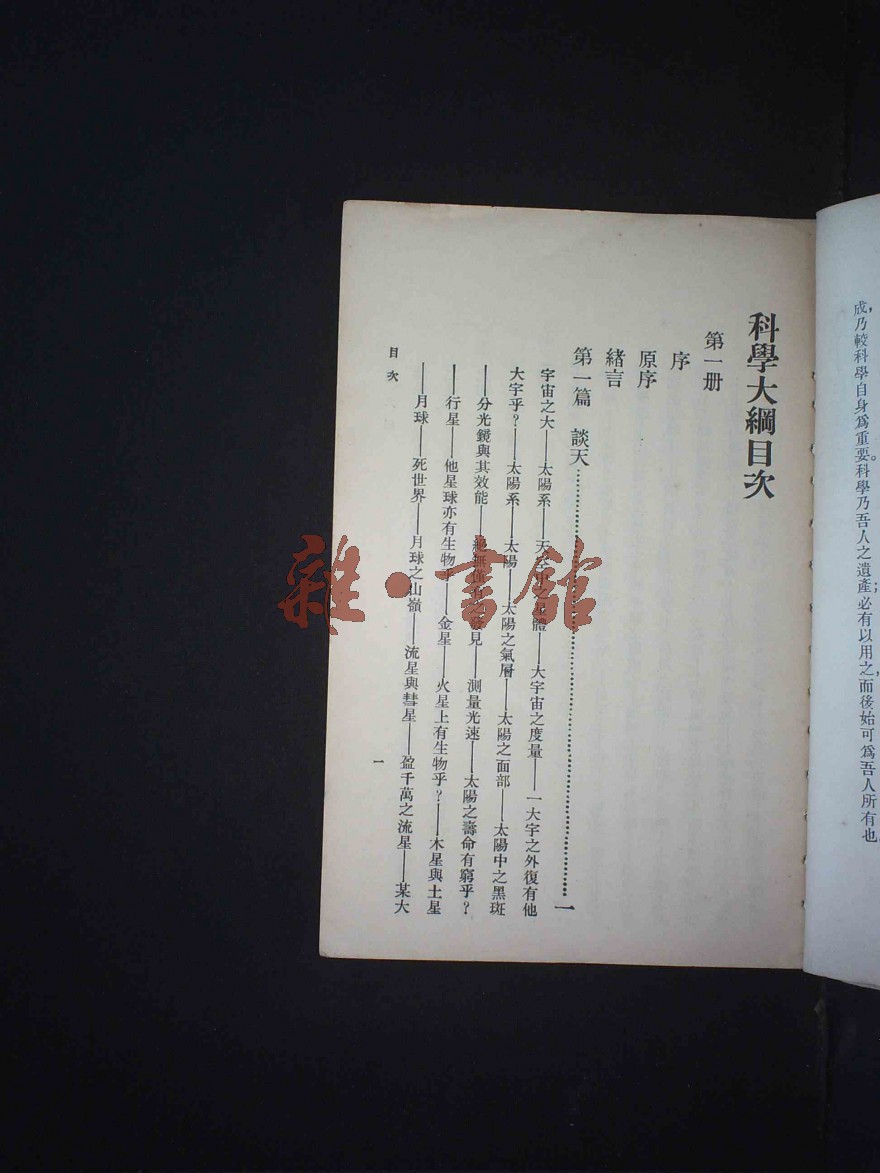 成,乃較科學自身爲重要。科學乃吾人之遺產;必有以用之,而後始可爲吾人所有也
科學大綱目次
第一册
序
原序
緒言
第一篇 談天……一
宇宙之大——太陽系——天空中之星體——大宇宙之度量——一大宇之外復有他
大宇乎?——太陽系——太陽——太陽之氣層——太陽之面部——太陽中之黑斑
——分光鏡與其效能——之發見——測量光速——太陽之壽命有窮乎?
——行星——他星球亦有生物乎——金星——火星上有生物乎?——木星與土星
——月球——死世界——月球之山嶺——流星與彗星——盈千萬之流星——某大
目次
一
雜·書館